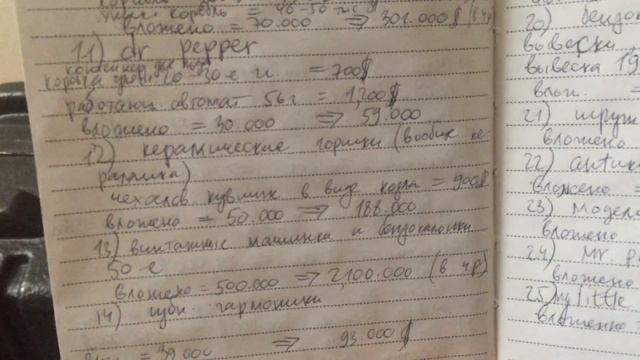 корабль =
вложено = 70.000 => 301.000$
11) dr pepper
20-30-е = 700$
работающ. автомат 56г = 1,200$
вложено = 30.000 => 59.000
12) керамические горшки (вообще ке
рамика)
чехослов. кувшин в виде козла = 900$
вложено = 50.000 => 188.000
13) винтажные машинки и бензоколонки
50-е
вложено = 500.000 => 2,100.000 (в ч.р)
14) губн. гармошки
39.000 => 93.000$
20)
вывески
вывеска 19
влож.
21)
вложено
22) антик
вложено
23) модел
вложено
24) Mr. p
вложено
25) my little
вложено